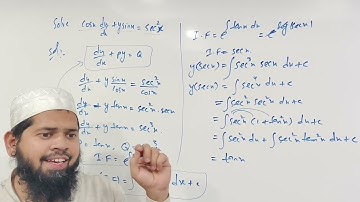 Solve cosx dy/dx + y sinx = sec²x
Sol:
dy/dx + py = Q
dy/dx + y sinx/cosx = sec²x/cosx
dy/dx + y tanx = sec²x . secx
dy/dx + y tanx = sec³x
= tanx, Q
I.F = e
dx + c
I.F = e^∫tanx dx = e^log|secx|
I.F = secx
y(secx) = ∫sec³x secx dx + c
y(secx) = ∫sec⁴x dx + c
= ∫sec²x sec²x dx + c
= ∫sec²x (1 + tan²x) dx + c
= ∫sec²x dx + ∫sec²x tan²x dx + c
= tanx